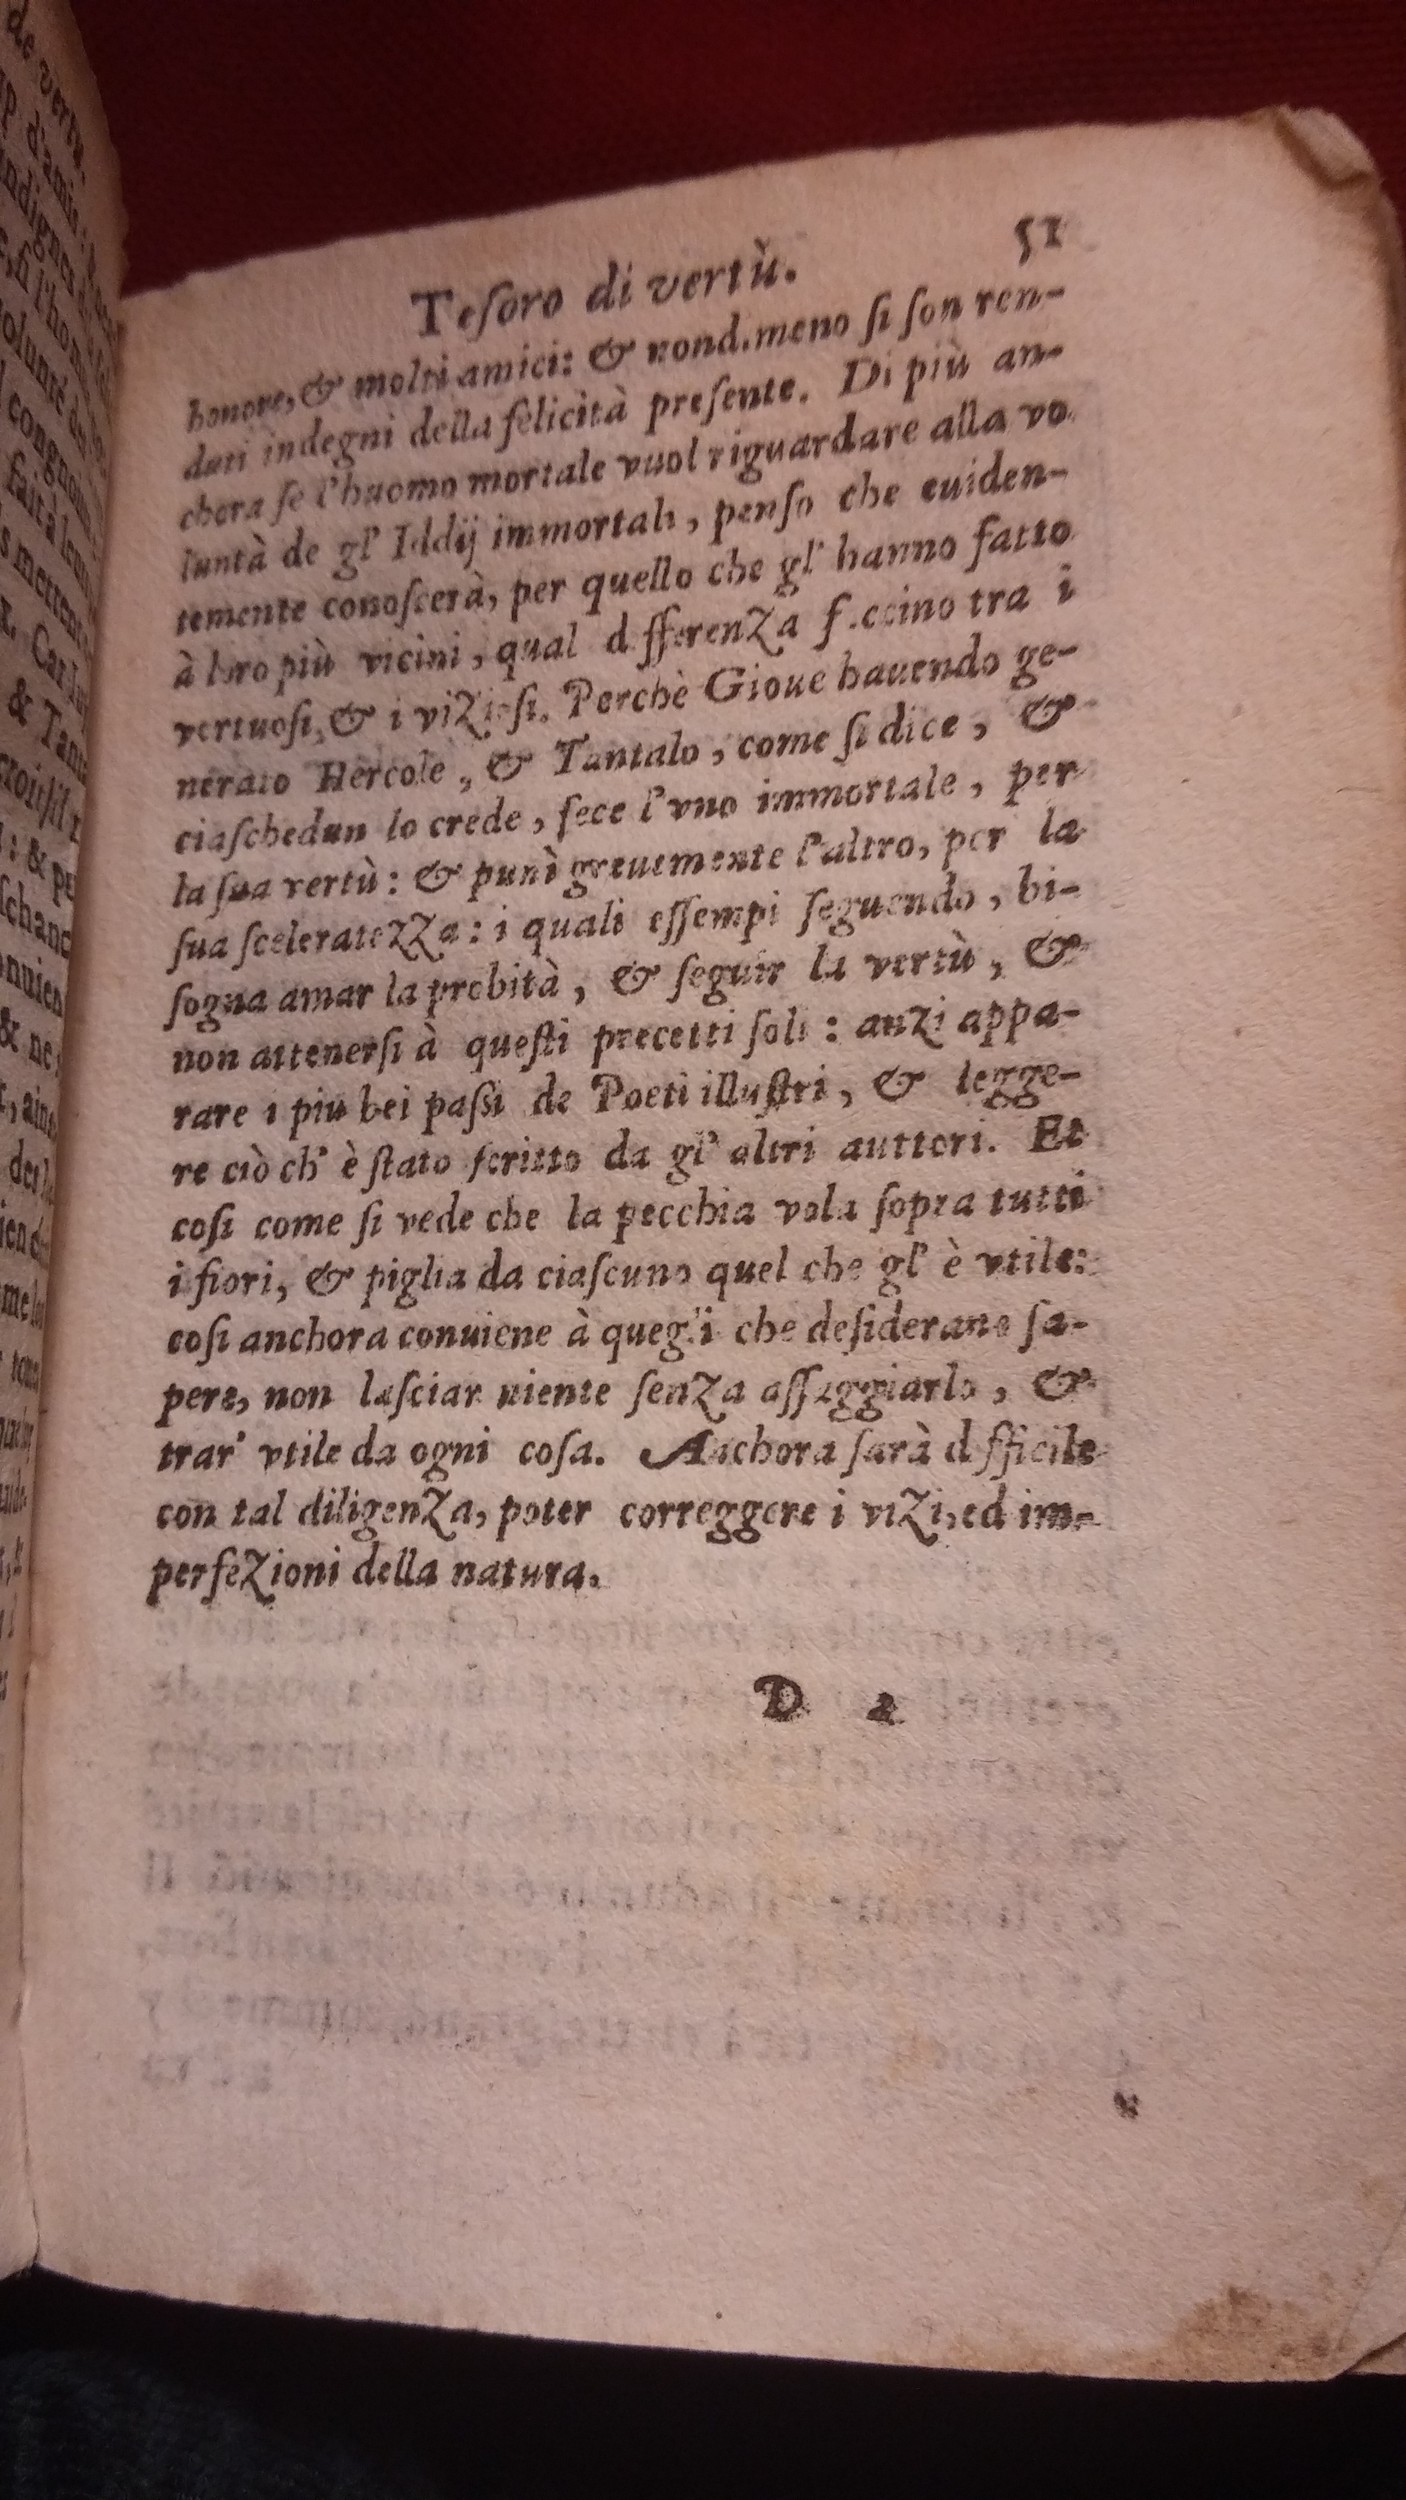 de vertu.
d'amis:
indignes
si l'hom
volunté de
congnoi
fait à leur
Car Iu
& Tant
: & pe
& ne
51
Teſoro di vertù.
honore, & molti amici: & nond.meno ſi ſon ren-
duti indegni della felicità preſente. Di più an-
chora ſe l'huomo mortale vuol riguardare alla vo
luntà de gl' Iddij immortali, penſo che euiden-
temente conoſcerà, per quello che gl' hanno fatto
à loro più vicini, qual d fferenza f.ccino tra i
vertuoſi, & i vizioſi. Perchè Gioue hauendo ge-
nerato Hercole, & Tantalo, come ſi dice, &
ciaſchedun lo crede, fece l'vno immortale, per
la ſua vertù: & punì greuemente l'altro, per la
ſua ſceleratezza: i quali eſſempi ſeguendo, bi-
ſogna amar la probità, & ſeguir la vertù, &
non attenerſi à queſti precetti ſoli: anzi appa-
rare i più bei paſſi de Poeti illuſtri, & legge-
re ciò ch' è ſtato ſcritto da gl' altri auttori. Et
coſi come ſi vede che la pecchia vola ſopra tutti
i fiori, & piglia da ciaſcuno quel che gl' è vtile:
coſi anchora conuiene à quegli che deſiderano ſa-
pere, non laſciar niente ſenza aſſaggiarlo, &
trar' vtile da ogni coſa. Anchora ſarà d fficile
con tal diligenza, poter correggere i vizi, ed im-
perfezioni della natura.
D 2